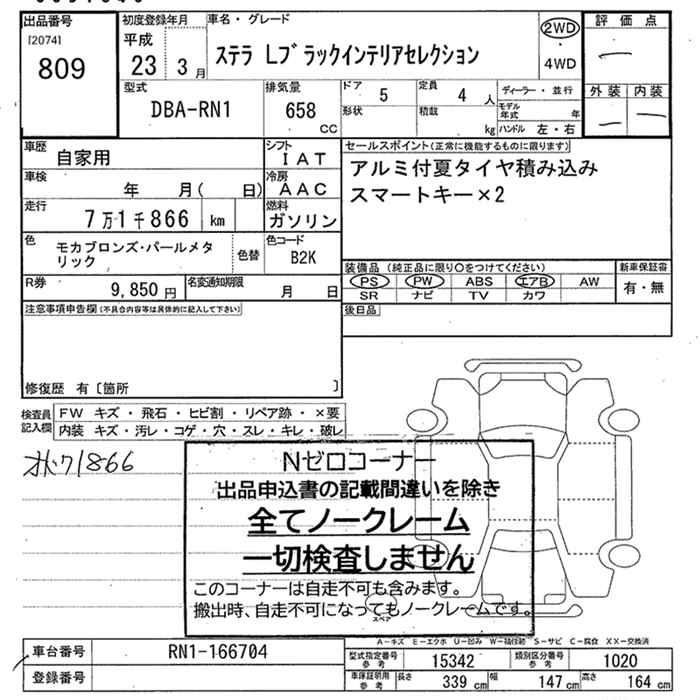 出品番号
[2074]
809
初度登録年月
平成
23 3月
車名・グレード
ステラ Lブラックインテリアセレクション
2WD
・
4WD
評価点
外装 内装
型式
DBA-RN1
排気量
658
cc
ドア
5
形状
定員
4 人
積載
kg
ディーラー・並行
モデル年式 年
ハンドル 左・右
車歴
自家用
シフト
IAT
車検
年 月( 日)
冷房
AAC
走行
7万1千866 km
燃料
ガソリン
色
モカブロンズ・パールメタリック
色替
色コード
B2K
R券
9,850 円
名変通知期限
月 日
セールスポイント(正常に機能するものに限ります)
アルミ付夏タイヤ積み込み
スマートキー×2
装備品(純正品に限り○をつけてください)
PS PW ABS エアB AW
SR ナビ TV カワ
新車保証書
有・無
後日品
注意事項申告欄(不具合内容等は具体的に記入して下さい)
修復歴 有〔箇所 〕
検査員
記入欄
FW キズ・飛石・ヒビ割・リペア跡・×要
内装 キズ・汚レ・コゲ・穴・スレ・キレ・破レ
1866
Nゼロコーナー
出品申込書の記載間違いを除き
全てノークレーム
一切検査しません
このコーナーは自走不可も含みます。
搬出時、自走不可になってもノークレームです。
スペア
A-キズ E-エクボ U-凹み W-補修跡 S-サビ C-腐食 XX-交換済
車台番号
RN1-166704
登録番号
型式指定番号
参考
15342
類別区分番号
参考
1020
車庫証明用
参考
長さ 339 cm 幅 147 cm 高さ 164 cm